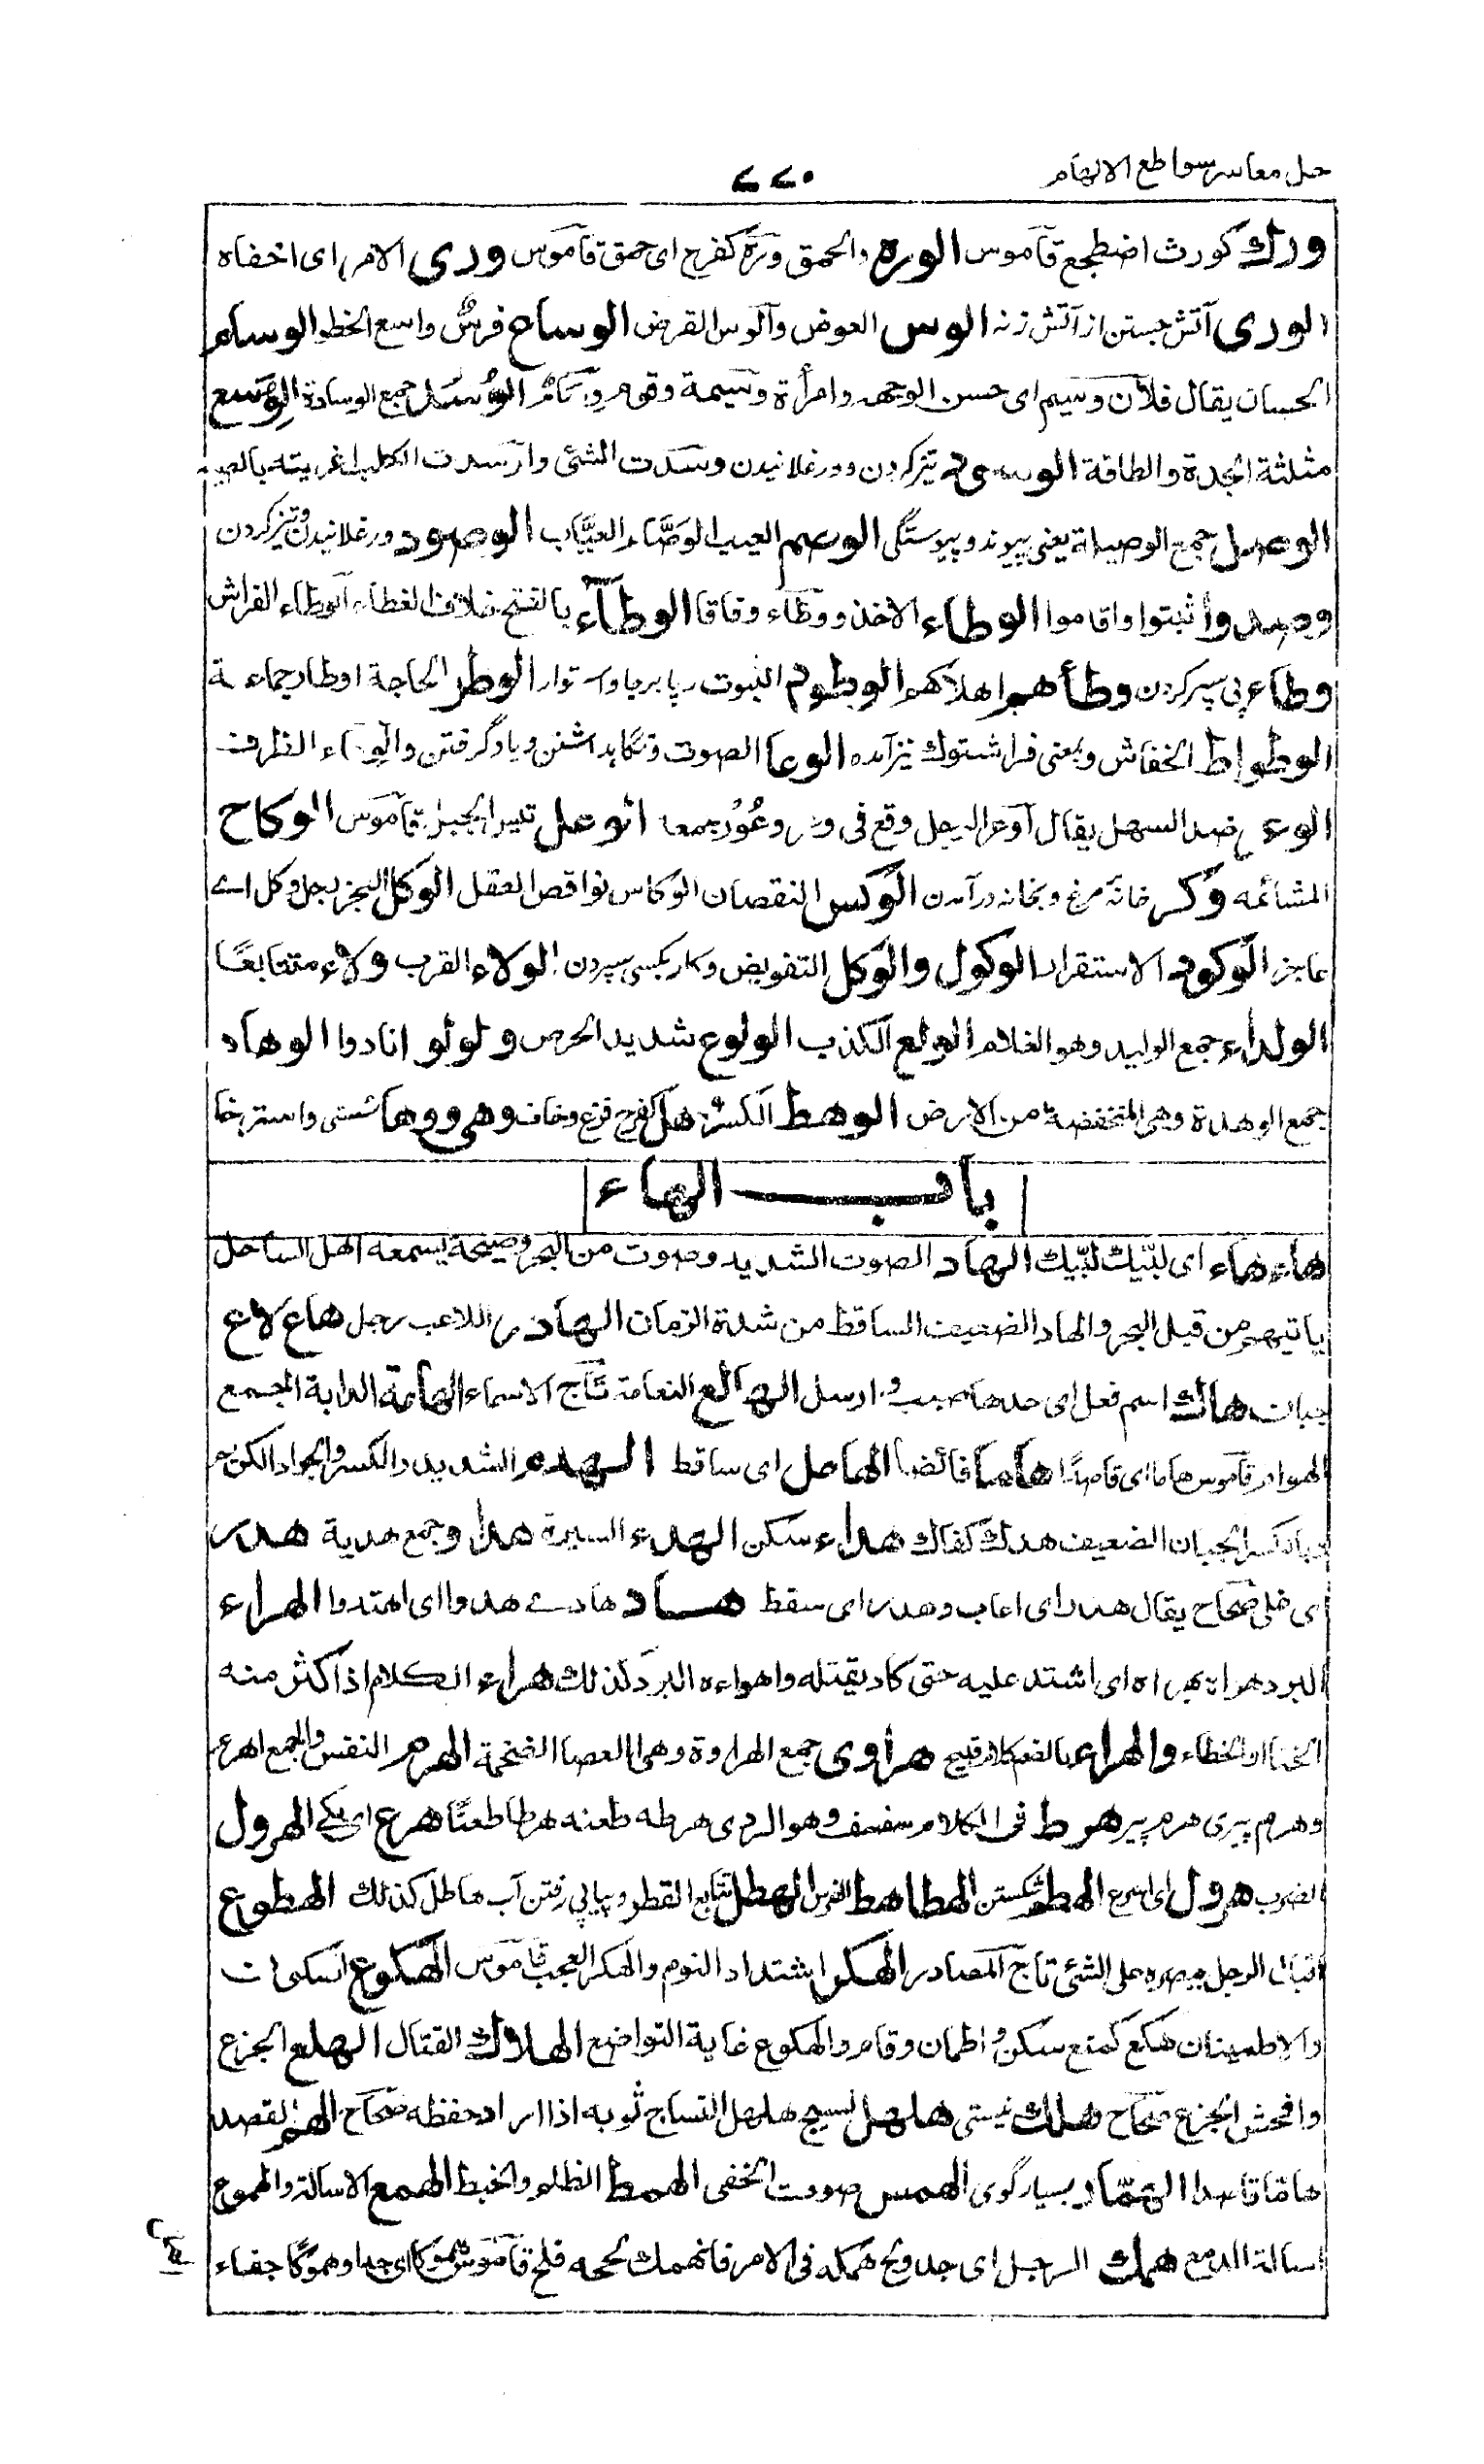 حل معاسر سواطع الالهام
٧٧٠
ورك كورث اضطجع قاموس الوره والحمق وره كفرح اى حمق قاموس ورى الامر اى اخفاه
الورى آتش جستن از آتش زنه الوس العوض وآلوس القرض الوساح فرس واسع الخطو الوسام
الحسان يقال فلان وسيم اى حسن الوجه وامرأة وسيمة وقوم الوسد جمع الوسادة الوسع
مثلثة الجدة والطاقة تيزكردن وورغلانيدن وسدت الشئ واوسدت الكلب اغريته بالصيد
الوصل جمع الوصيلة يعنى پيوند و پيوستگى الوصم العيب الوصام العياب الوصود ورغلانيدن وتيزكردن
وصدوا ثبتوا واقاموا الوطاء الاخذ ووطاء وفاقا الوطاء بالفتح خلاف الغطاء الوطاء الفراش
وطاء پى سپر كردن وطأهم اهلاكهم الوطود الثبوت پا برجا واستوار الوطر الحاجة اوطار جماعة
الوطواط الخفاش وبمعنى فراشتوك نيز آمده الوعا الصوت ونگاه داشتن و ياد گرفتن والوعاء الظرف
الوعر ضد السهل يقال اوعر الرجل وقع فى وعر وعور جمعه الوعل تيس الجبل قاموس الوكاح
المشائمه وكر خانه مرغ و بخانه در آمدن الوكس النقصان الوكاس نواقص العقل الوكل العجز رجل وكل اے
عاجز الوكود الاستقرار الوكول والوكل التفويض وكار بكسى سپردن الولاء القرب ولاء متتابعًا
الولداء جمع الوليد وهو الغلام الولع الكذب الولوع شديد الحرص ولولو انادوا الوهاد
جمع الوهدة وهى المنخفضة من الارض الوهط الكسر وهل كفرح فزع وخاف وهى ووها سستى واسترخا
باب الهاء
هاء هاء اى لبيك لبيك الهاد الصوت الشديد وصوت من البحر وصيحة يسمعه اهل الساحل
ياتيهم من قبل البحر والهاد الضعيف الساقط من شدة الزمان الهادر اللاعب رجل هاع لاع
جبان هاك اسم فعل اى خذ ها صبب و ارسل الهالع النعامة تاج الاسماء الهامة الدابة الجمع
الهوام قاموس هاما اى قاصدًا هاما فائضا الهامل اى ساقط الهدم الشديد والكسر والجواد الكريم
بالكسر الجبان الضعيف هدك كفاك هداء سكن الهدء السيرة هدا وجمع هدية هدر
اى غلى صحاح يقال هدر اى اعاب وهدر اى سقط هاد هادے هدوا اى اهتدوا الهراء
البرد هراه يهراه اى اشتد عليه حتى كاد يقتله واهواءه البرد كذلك هراء الكلام اذا كثر منه
الخنا او الخطاء والهراء بالضم كلام قبيح هراوى جمع الهراوة وهى العصا الضخمة الهرم النفس والجمع اهرم
وهرم پيرى هرم پير هرط فى الكلام سفسف وهو الردى هرطه طعنه هرطا طعنًا هرع اى بكے الهرول
الضرب هرول اى اسرع الهطر شكستن الهطاهط الفرس الهطل تتابع القطر و پياپى رفتن آب هاطل كذلك الهطوع
اقبال الرجل ببصره على الشئ تاج المصادر الهكر اشتداد النوم والهكر العجب قاموس الهكوع السكون
والاطمينان هكع كمنع سكن واطمان وقام والهكوع غاية التواضع الهلاك القتال الهلع الجزع
وافحش الجزع صحاح هلك نيستى هلهل نسيج هلهل النساج ثوبه اذا اراد حفظه صحاح الهم القصد
هاما قاصدا الهمار بسيار گوى الهمس صوت الخفى الهمط الظلم والخبط الهمع الاسالة والهموع
اسالة الدمع همك الرجل اى جد ولج همكه فى الامر فانهمك لججه فلج قاموس هموكا اى جدا وهموكا جفاء